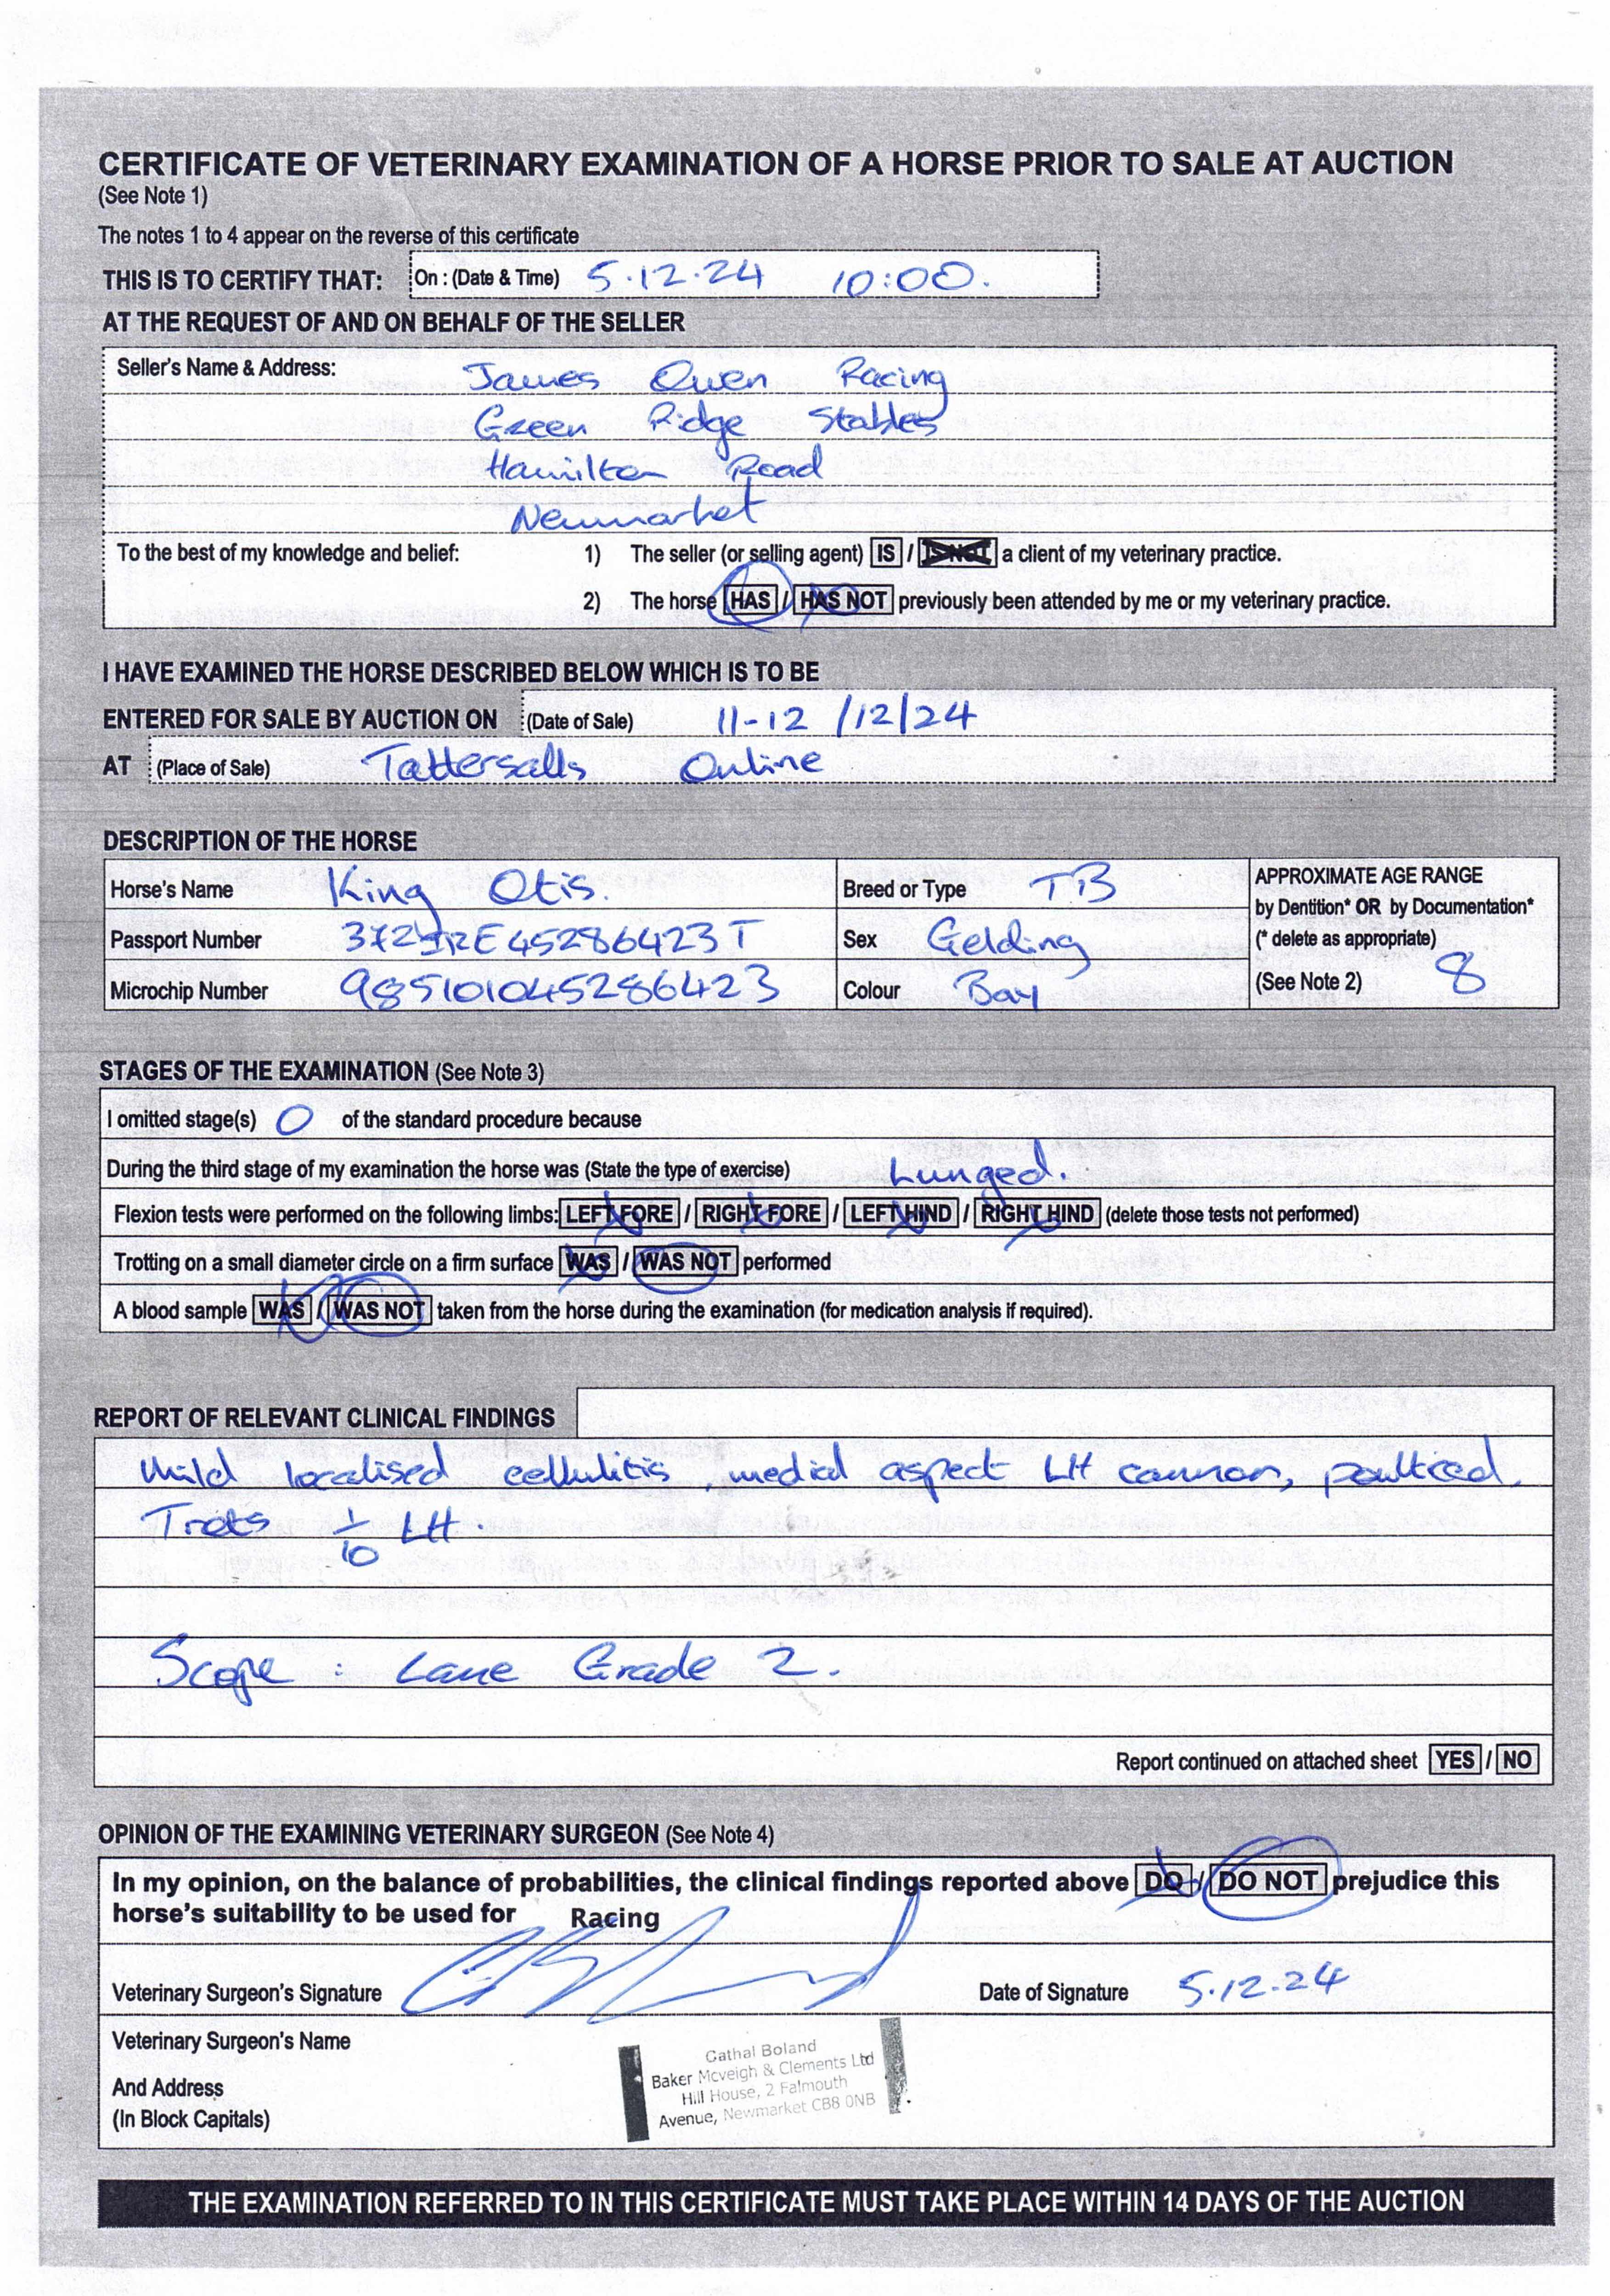 CERTIFICATE OF VETERINARY EXAMINATION OF A HORSE PRIOR TO SALE AT AUCTION
(See Note 1)
The notes 1 to 4 appear on the reverse of this certificate
THIS IS TO CERTIFY THAT: On : (Date & Time) 5.12.24 10:00.
AT THE REQUEST OF AND ON BEHALF OF THE SELLER
Seller's Name & Address: James Owen Racing
Green Ridge Stables
Hamilton Road
Newmarket
To the best of my knowledge and belief: 1) The seller (or selling agent) IS / IS NOT a client of my veterinary practice.
2) The horse HAS / HAS NOT previously been attended by me or my veterinary practice.
I HAVE EXAMINED THE HORSE DESCRIBED BELOW WHICH IS TO BE
ENTERED FOR SALE BY AUCTION ON (Date of Sale) 11-12 /12/24
AT (Place of Sale) Tattersalls Online
DESCRIPTION OF THE HORSE
Horse's Name King Otis. Breed or Type TB APPROXIMATE AGE RANGE
by Dentition* OR by Documentation*
Passport Number 372IRE45286423T Sex Gelding (* delete as appropriate)
Microchip Number 985101045286423 Colour Bay (See Note 2) 8
STAGES OF THE EXAMINATION (See Note 3)
I omitted stage(s) 0 of the standard procedure because
During the third stage of my examination the horse was (State the type of exercise) Lunged.
Flexion tests were performed on the following limbs: LEFT FORE / RIGHT FORE / LEFT HIND / RIGHT HIND (delete those tests not performed)
Trotting on a small diameter circle on a firm surface WAS / WAS NOT performed
A blood sample WAS / WAS NOT taken from the horse during the examination (for medication analysis if required).
REPORT OF RELEVANT CLINICAL FINDINGS
Mild localised cellulitis, medial aspect LH cannon, poulticed.
Trots 1/10 LH.
Scope : Lane Grade 2.
Report continued on attached sheet YES / NO
OPINION OF THE EXAMINING VETERINARY SURGEON (See Note 4)
In my opinion, on the balance of probabilities, the clinical findings reported above DO / DO NOT prejudice this
horse's suitability to be used for Racing
Veterinary Surgeon's Signature Date of Signature 5.12.24
Veterinary Surgeon's Name
And Address
(In Block Capitals)
Cathal Boland
Baker Mcveigh & Clements Ltd
Hill House, 2 Falmouth
Avenue, Newmarket CB8 0NB
THE EXAMINATION REFERRED TO IN THIS CERTIFICATE MUST TAKE PLACE WITHIN 14 DAYS OF THE AUCTION